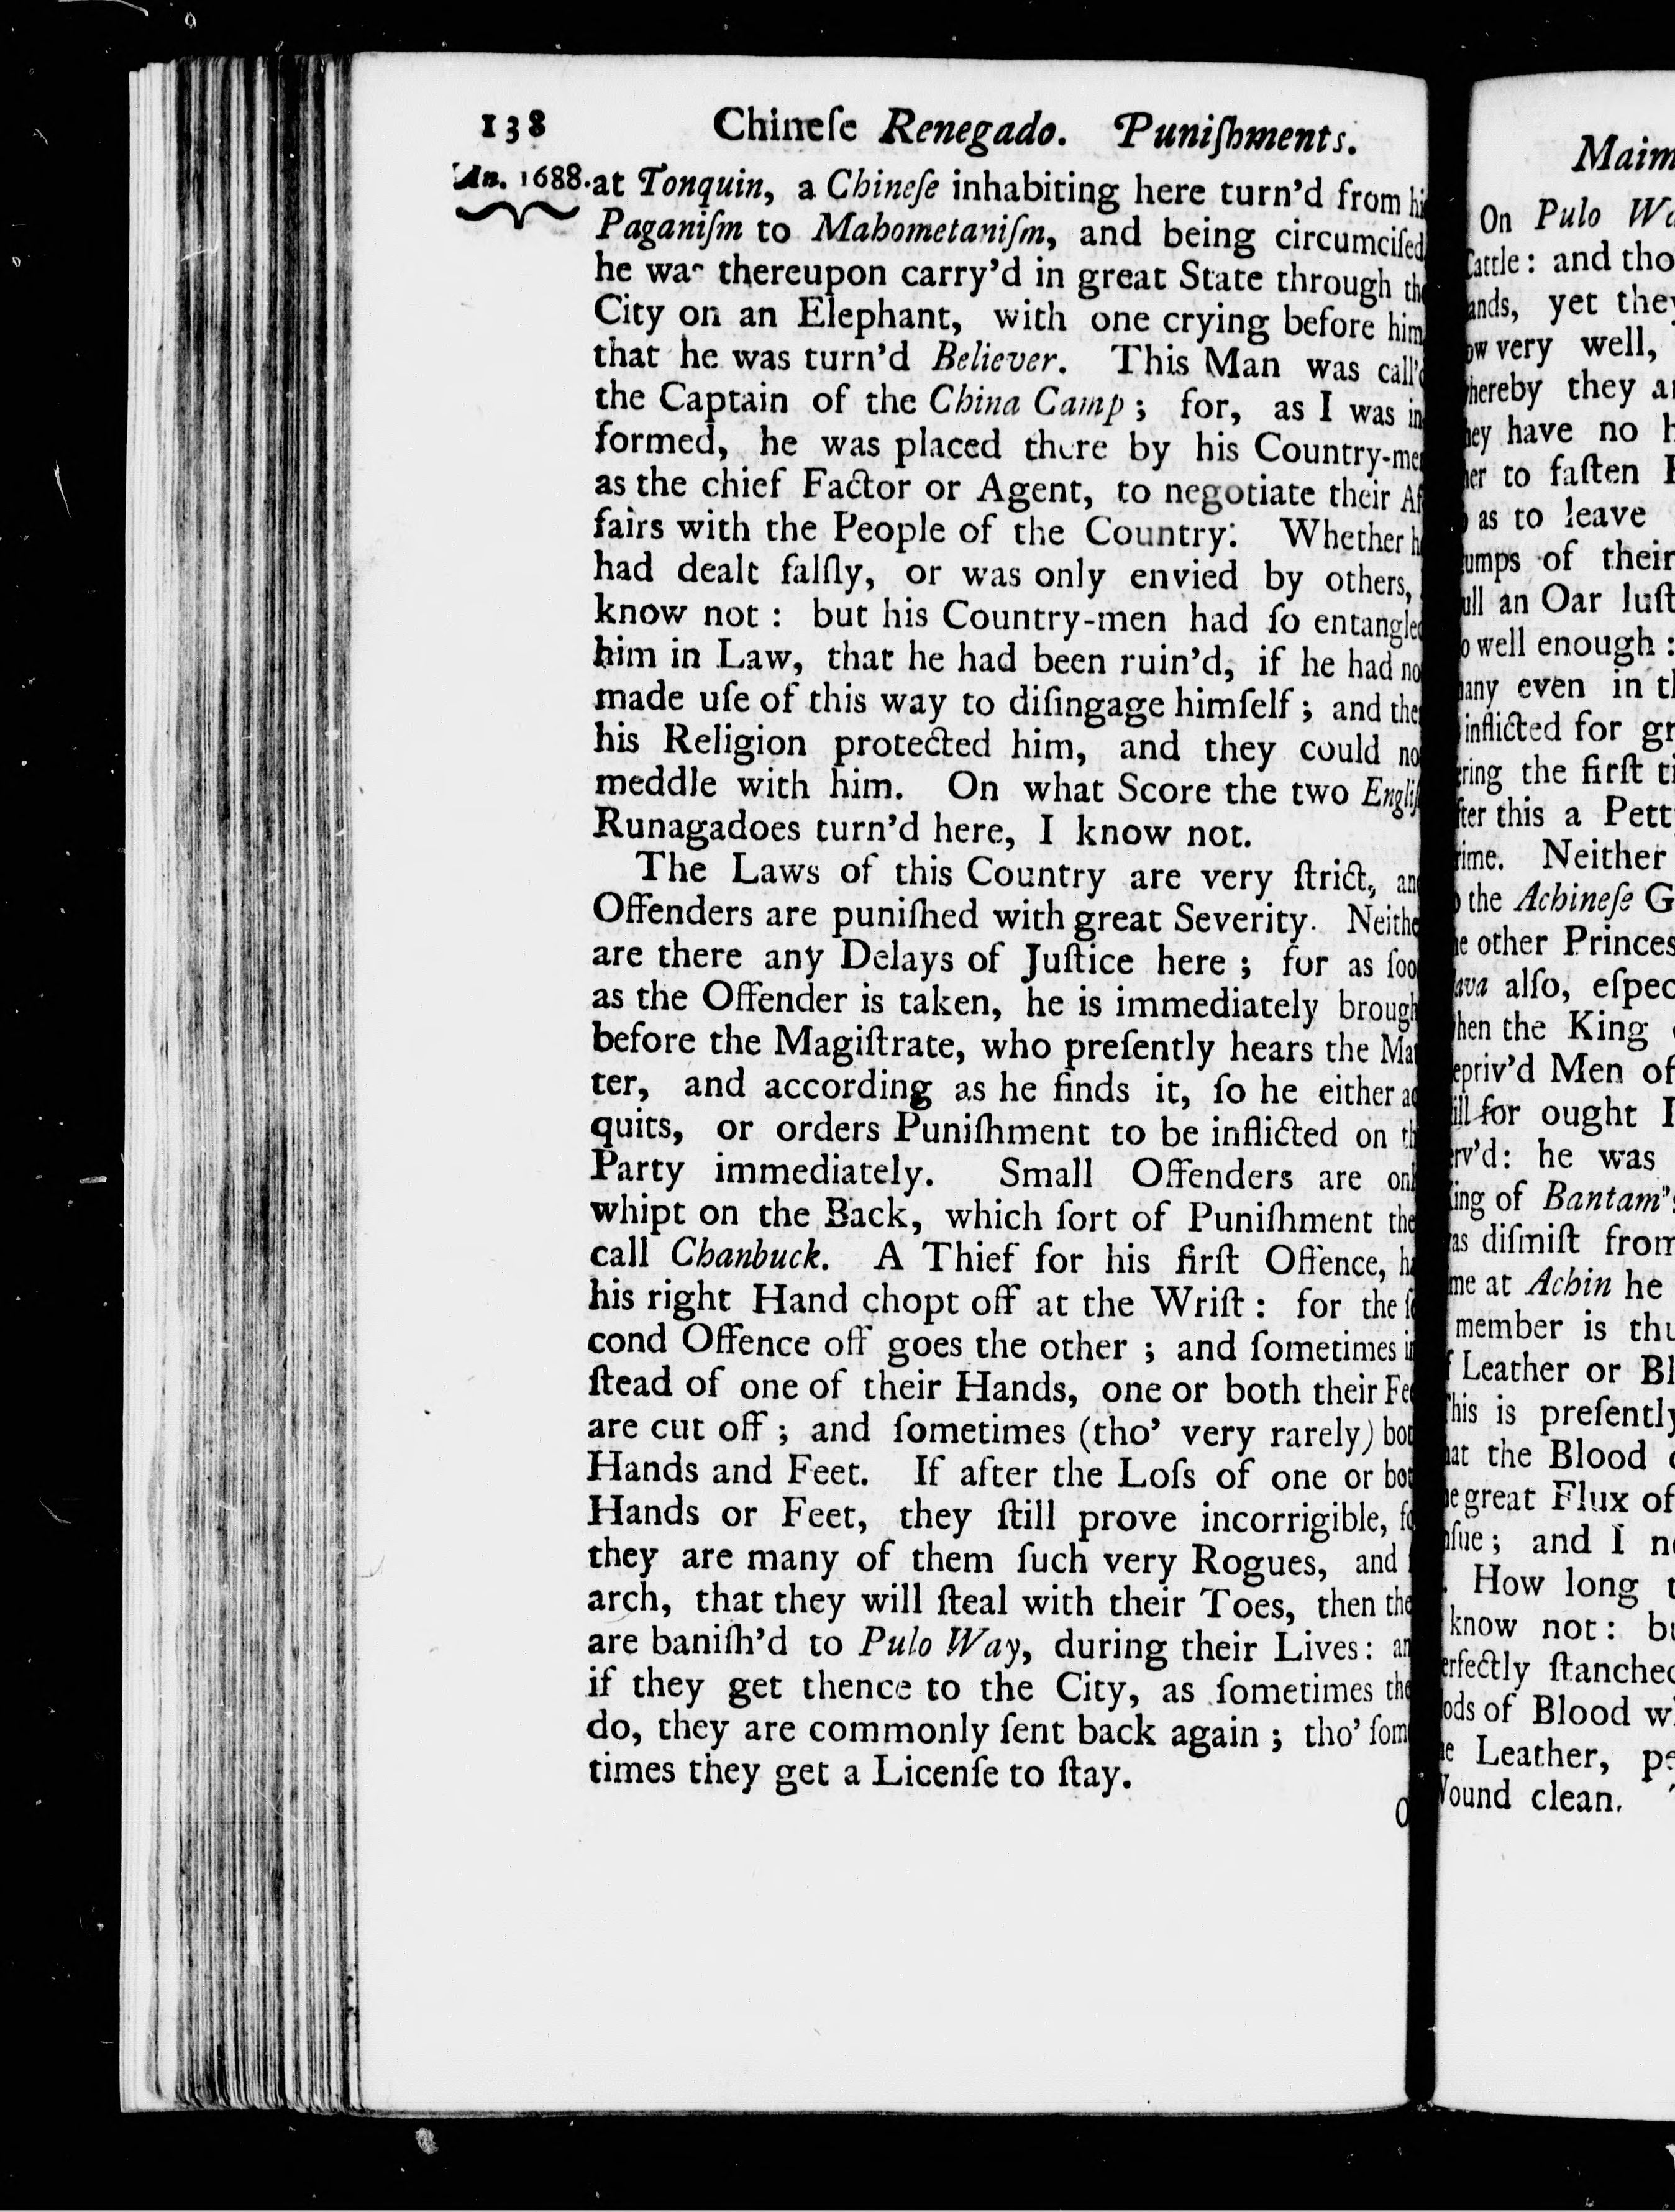 138 Chineſe Renegado. Puniſhments.
An. 1688. at Tonquin, a Chineſe inhabiting here turn'd from hi
Paganiſm to Mahometaniſm, and being circumciſed
he was thereupon carry'd in great State through the
City on an Elephant, with one crying before him
that he was turn'd Believer. This Man was call'd
the Captain of the China Camp; for, as I was in
formed, he was placed there by his Country-me
as the chief Factor or Agent, to negotiate their Af
fairs with the People of the Country: Whether h
had dealt falſly, or was only envied by others,
know not: but his Country-men had ſo entangled
him in Law, that he had been ruin'd, if he had no
made uſe of this way to diſingage himſelf; and the
his Religion protected him, and they could no
meddle with him. On what Score the two Engliſ
Runagadoes turn'd here, I know not.
The Laws of this Country are very ſtrict, an
Offenders are puniſhed with great Severity. Neithe
are there any Delays of Juſtice here; for as ſoo
as the Offender is taken, he is immediately brough
before the Magiſtrate, who preſently hears the Mat
ter, and according as he finds it, ſo he either ac
quits, or orders Puniſhment to be inflicted on th
Party immediately. Small Offenders are onl
whipt on the Back, which ſort of Puniſhment the
call Chanbuck. A Thief for his firſt Offence, ha
his right Hand chopt off at the Wriſt: for the ſe
cond Offence off goes the other; and ſometimes in
ſtead of one of their Hands, one or both their Fee
are cut off; and ſometimes (tho' very rarely) bot
Hands and Feet. If after the Loſs of one or bot
Hands or Feet, they ſtill prove incorrigible, fo
they are many of them ſuch very Rogues, and
arch, that they will ſteal with their Toes, then the
are baniſh'd to Pulo Way, during their Lives: an
if they get thence to the City, as ſometimes the
do, they are commonly ſent back again; tho' ſom
times they get a Licenſe to ſtay.
O
Maim
On Pulo Wa
Cattle: and tho
ands, yet they
ow very well,
hereby they ar
hey have no h
her to faſten
as to leave
umps of their
ull an Oar luſt
o well enough:
any even in th
inflicted for gr
ring the firſt ti
fter this a Pett
rime. Neither
the Achineſe G
he other Princes
ava alſo, eſpec
hen the King
epriv'd Men of
ill for ought I
rv'd: he was
ing of Bantam's
as diſmiſt from
me at Achin he
member is thu
f Leather or Bl
his is preſently
hat the Blood
he great Flux of
nſue; and I n
How long t
know not: bu
erfectly ſtanched
ods of Blood w
he Leather, pe
ound clean.